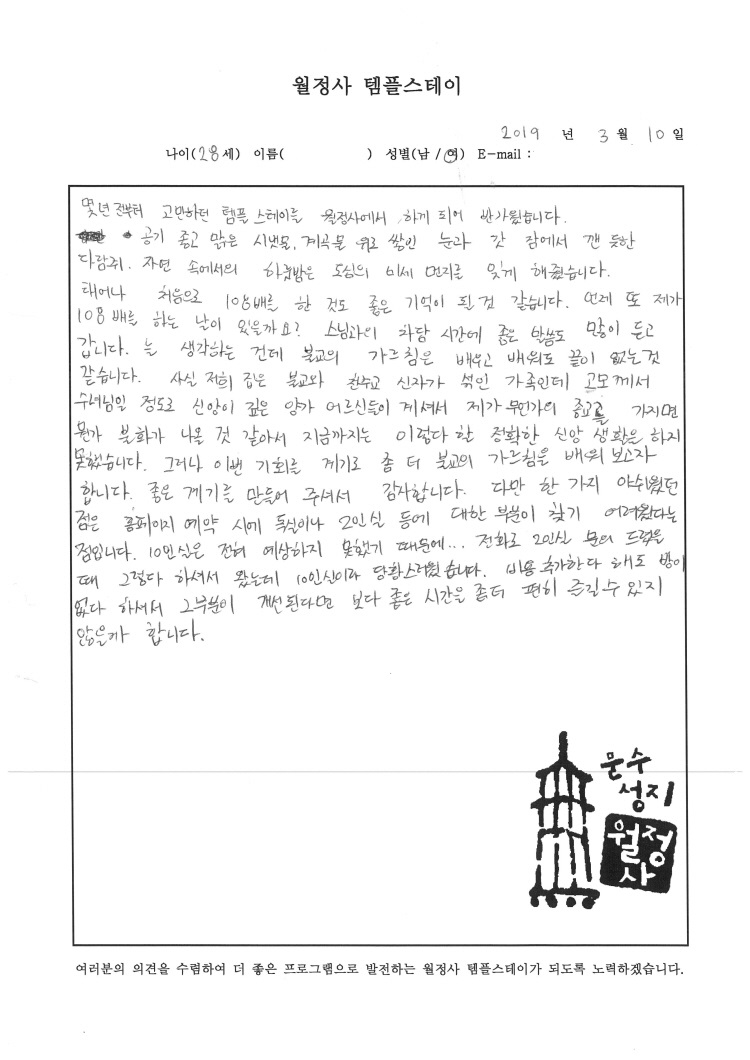 월정사 템플스테이
2019 년 3 월 10 일
나이(28세) 이름( ) 성별(남 / 여) E-mail :
몇년 전부터 고민하던 템플 스테이를 월정사에서 하게 되어 반가웠습니다.
공기 좋고 맑은 시냇물, 계곡물 위로 쌓인 눈과 갓 잠에서 깬 듯한
다람쥐. 자연 속에서의 하룻밤은 도심의 미세 먼지를 잊게 해줬습니다.
태어나 처음으로 108배를 한 것도 좋은 기억이 될 것 같습니다. 언제 또 제가
108배를 하는 날이 있을까요? 스님과의 차담 시간에 좋은 말씀도 많이 듣고
갑니다. 늘 생각하는 건데 불교의 가르침은 배우고 배워도 끝이 없는 것
같습니다. 사실 저희 집은 불교와 천주교 신자가 섞인 가족인데 고모께서
수녀님일 정도로 신앙이 깊은 양가 어르신들이 계셔서 제가 무언가의 종교를 가지면
뭔가 불화가 나올 것 같아서 지금까지는 이렇다 할 정확한 신앙 생활은 하지
못했습니다. 그러나 이번 기회를 계기로 좀 더 불교의 가르침을 배워 보고자
합니다. 좋은 계기를 만들어 주셔서 감사합니다. 다만 한 가지 아쉬웠던
점은 홈페이지 예약 시에 독실이나 2인실 등에 대한 부분이 찾기 어려웠다는
점입니다. 10인실은 전혀 예상하지 못했기 때문에... 전화로 2인실 문의 드렸을
때 그렇다 하셔서 왔는데 10인실이라 당황스러웠습니다. 비용 추가한다 해도 방이
없다 하셔서 그부분이 개선된다면 보다 좋은 시간을 좀더 편히 즐길 수 있지
않을까 합니다.
문수
성지
월정
사
여러분의 의견을 수렴하여 더 좋은 프로그램으로 발전하는 월정사 템플스테이가 되도록 노력하겠습니다.